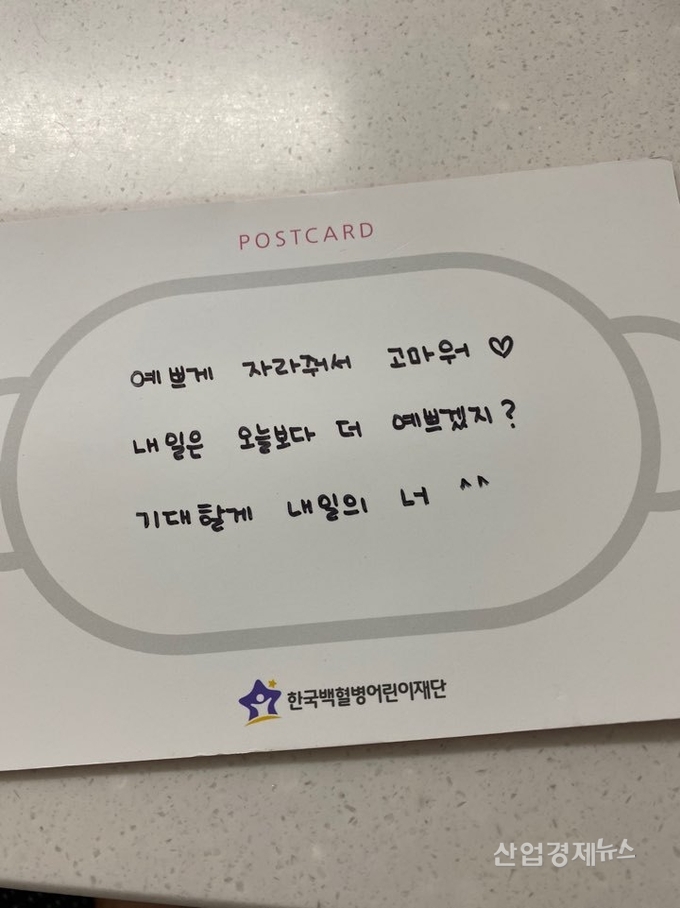 POSTCARD
예쁘게 자라줘서 고마워 ♡
내일은 오늘보다 더 예쁘겠지?
기대할게 내일의 너 ^^
한국백혈병어린이재단
산업경제뉴스